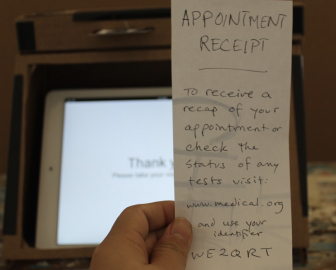 APPOINTMENT
RECEIPT
To receive a
recap of your
appointment or
check the
status of any
tests visit:
www.medical.org
and use your
identifier
WE2QRT
Thank
Please take your